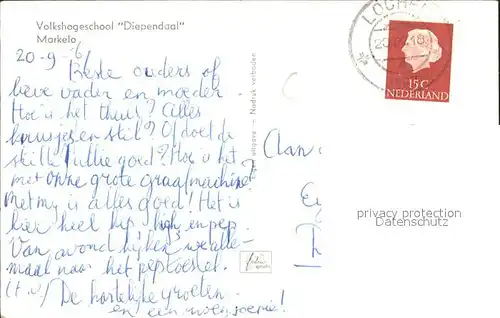 Volkshogeschool "Diependaal"
Markelo
20-9-'6
Beste ouders of
lieve vader en moeder.
Hoe is het thuis? Alles
kruisjes en stil? Of doet de
stilte jullie goed? Hoe is het
met onze grote graafmachine?
Met my is alles goed! Het is
hier heel hip, high en pep.
Van avond kijken we alle-
maal naar het peptoestel.
(t.v.) De hartelijke groeten
en een
Eigen uitgave - Nadruk verboden
LOCHE
15 C
NEDERLAND
Aan
privacy protection
Datenschutz